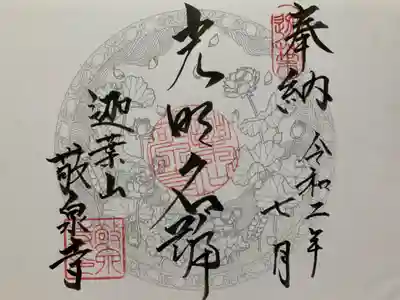 奉納
令和二年
七月
光明名號
迦葉山
敬泉寺